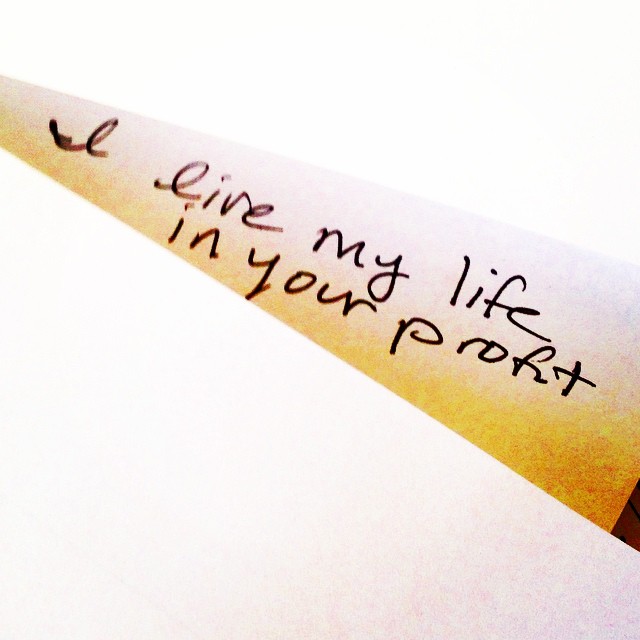 I live my life
in your profit